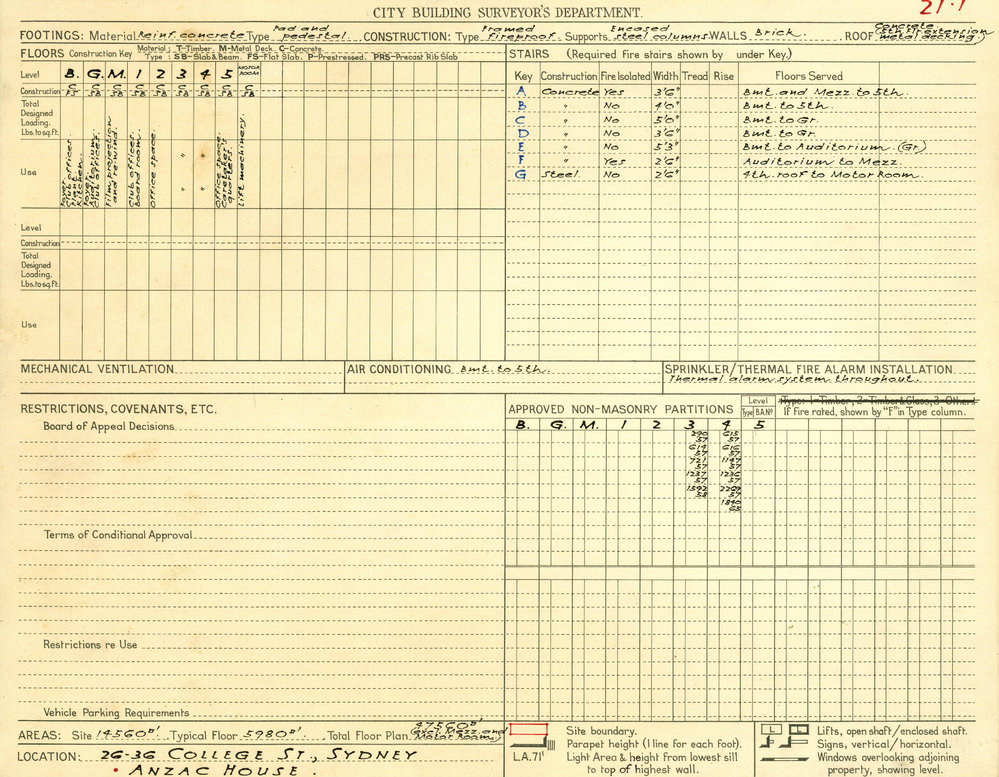 CITY BUILDING SURVEYOR'S DEPARTMENT.
21·1
FOOTINGS: Material Reinf. concrete Type Pad and pedestal CONSTRUCTION: Type Framed Fireproof Supports Encased steel columns WALLS Brick. ROOF Concrete. (5th flr. extension metal decking)
FLOORS Construction Key Material: T-Timber. M-Metal Deck. C-Concrete.
Type: SB-Slab & Beam. FS-Flat Slab. P-Prestressed. PRS-Precast Rib Slab
Level B. G. M. 1 2 3 4 5 MOTOR ROOM
Construction C FS C SB C SB C SB C SB C SB C SB C SB C SB
Total Designed Loading. Lbs. to sq. ft.
Use
Foyer. Club offices. Plant. Kitchen.
Foyer. Auditorium. Club offices.
Film projection and re-wind.
Club offices. Board room.
Office space.
"
"
"
"
Office space. Caretaker's quarters.
Lift machinery.
Level
Construction
Total Designed Loading. Lbs. to sq. ft.
Use
STAIRS (Required fire stairs shown by under Key.)
Key Construction Fire Isolated Width Tread Rise Floors Served
A Concrete Yes 3'6" Bmt. and Mezz. to 5th.
B " No 4'0" Bmt. to 5th.
C " No 5'0" Bmt. to Gr.
D " No 3'6" Bmt. to Gr.
E " No 5'3" Bmt. to Auditorium. (Gr.)
F " Yes 2'6" Auditorium to Mezz.
G Steel. No 2'6" 4th. roof to Motor Room.
MECHANICAL VENTILATION
AIR CONDITIONING Bmt. to 5th.
SPRINKLER/THERMAL FIRE ALARM INSTALLATION
Thermal alarm system throughout.
RESTRICTIONS, COVENANTS, ETC.
Board of Appeal Decisions
Terms of Conditional Approval
Restrictions re Use
Vehicle Parking Requirements
APPROVED NON-MASONRY PARTITIONS Level Type B.A. No Type: 1-Timber, 2-Timber & Glass, 3-Other.
If fire rated, shown by "F" in Type column.
B. G. M. 1 2 3 4 5
290 615
57 57
614 616
57 57
721 1147
57 57
1237 1236
57 57
1592 2209
58 57
1840
65
AREAS: Site 14560□' Typical Floor 5980□' Total Floor Plan 47560□' (excl. Mezz. and Motor Room)
LOCATION: 26-36 COLLEGE ST., SYDNEY
• ANZAC HOUSE.
Site boundary.
Parapet height (1 line for each foot).
L.A.71' Light Area & height from lowest sill
to top of highest wall.
L Lifts, open shaft/enclosed shaft.
Signs, vertical/horizontal.
Windows overlooking adjoining
property, showing level.